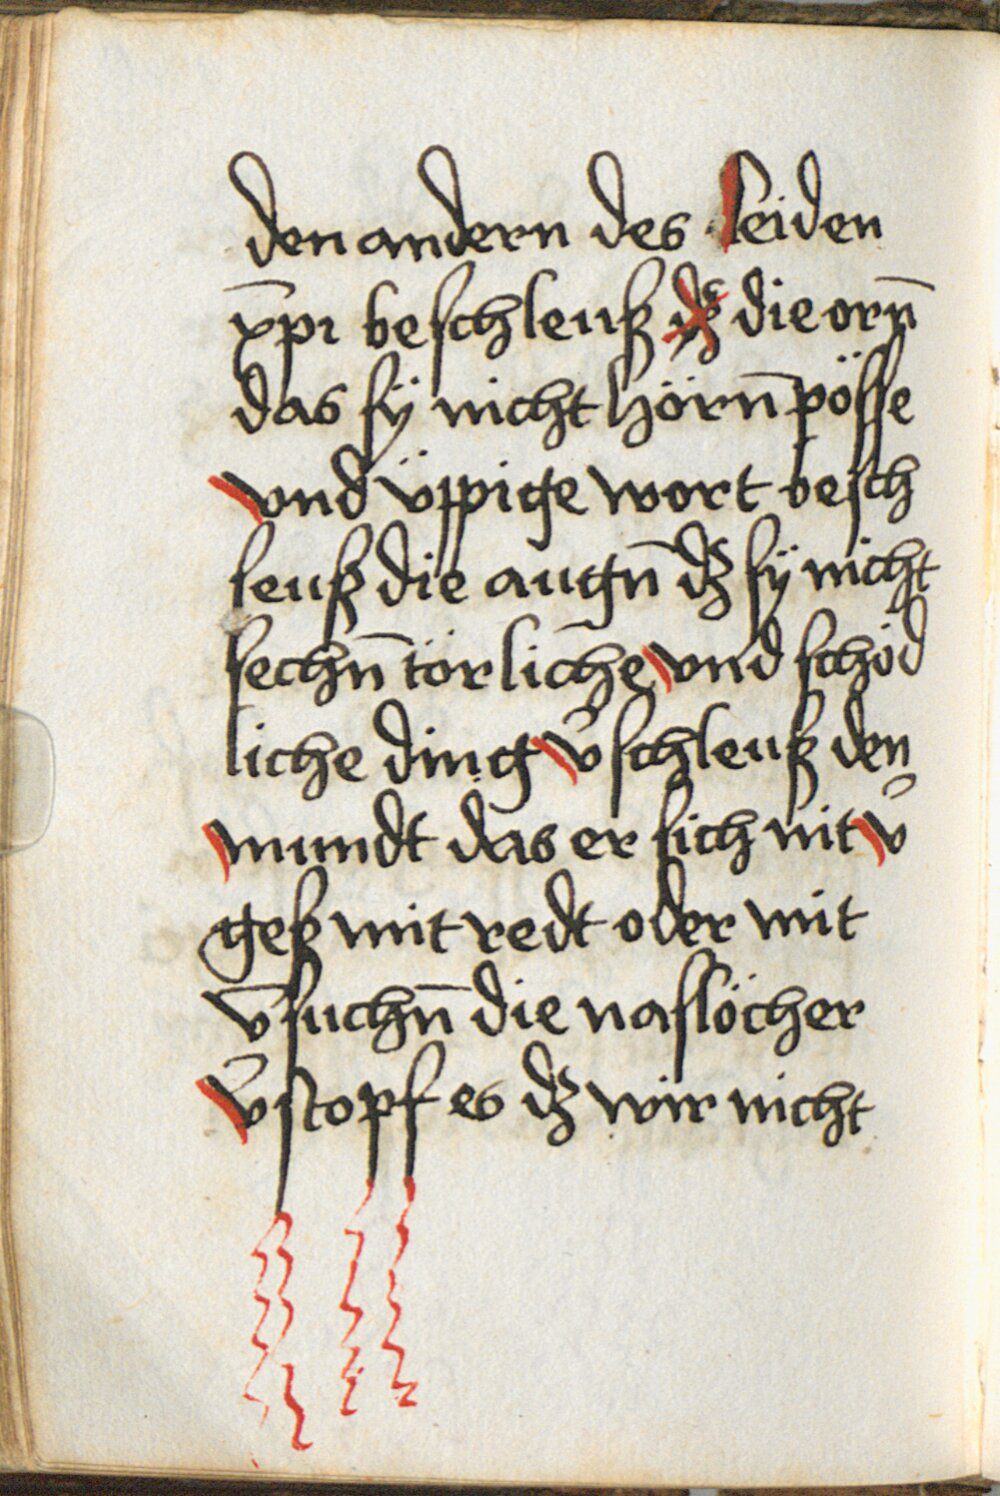 den andern des leiden
xp̄i beschleuß dz die orn̄
das sÿ nicht hörn̄ pösse
vnd üppige wort besch
leuß die augn̄ dz sÿ nicht
sechn̄ törliche vnd schöd
liche ding v̓schleuß den
mundt das er sich nit v̓
geß mit redt oder mit
v̄suchn̄ die naslöcher
v̓stopf es dz wir nicht